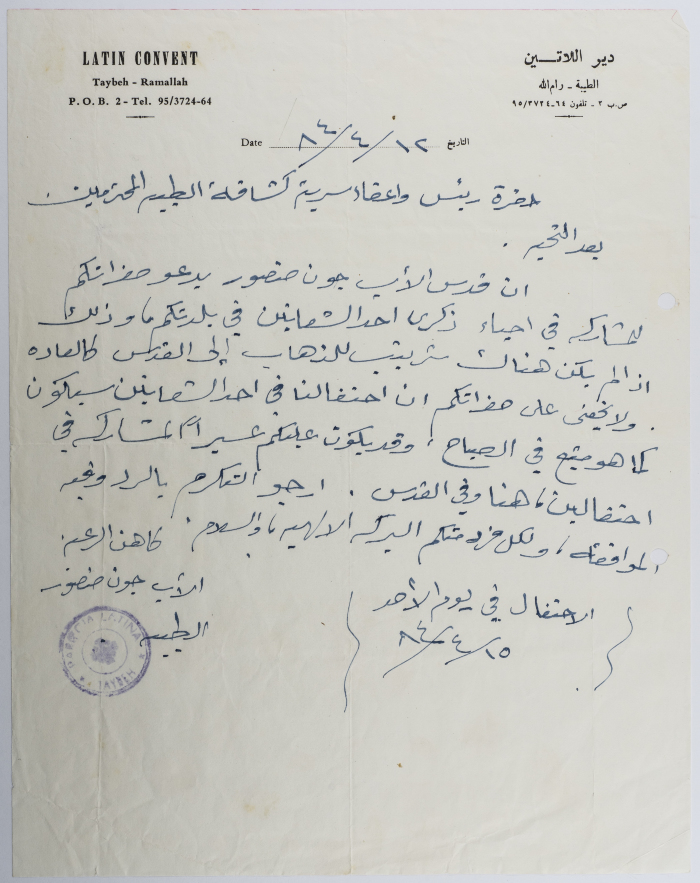 LATIN CONVENT
Taybeh - Ramallah
P. O. B. 2 - Tel. 95/3724-64
دير اللاتين
الطيبة - رام الله
ص.ب ٢ - تلفون ٦٤-٩٥/٣٧٢٤
Date ٨٤/٤/١٢ التاريخ
حضرة رئيس واعضاء سرية كشافة الطيبه المحترمين.
بعد التحيه .
ان قدس الأب جون منصور يدعو حضراتكم
للمشاركه في احياء ذكرى احد الشعانين في بلدتكم، وذلك
اذا لم يكن هناك ترتيب للذهاب إلى القدس كالعاده
ولا يخفى على حضراتكم ان احتفالنا في احد الشعانين سيكون .
كما هو متبع في الصباح ، وقد يكون عليكم عسيراً المشاركه في
احتفالين، هنا وفي القدس . ارجو التكرم بالرد وفيه
الموافقه، ولكل فرد منكم البركه الالهيه، والسلام .
كاهن الرعيه
الأب جون منصور
الطيبه
الاحتفال في يوم الأحد
٨٤/٤/١٥
PAROECIA LATINA
TAYBEH